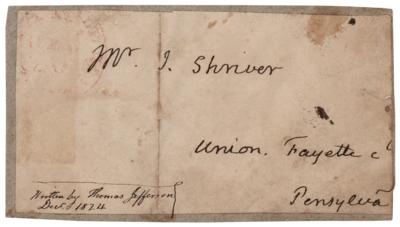 Mr. J. Shriver
Union. Fayette c
Pensylva
Written by Thomas Jefferson
Decr. 1824